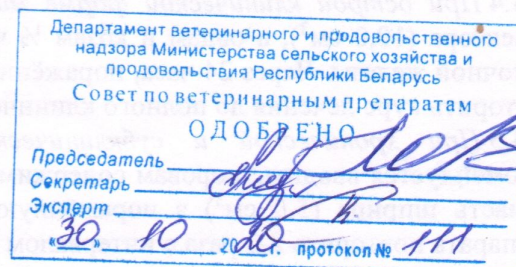 Департамент ветеринарного и продовольственного
надзора Министерства сельского хозяйства и
продовольствия Республики Беларусь
Совет по ветеринарным препаратам
ОДОБРЕНО
Председатель
Секретарь
Эксперт
«30» 10 2020г. протокол № 111